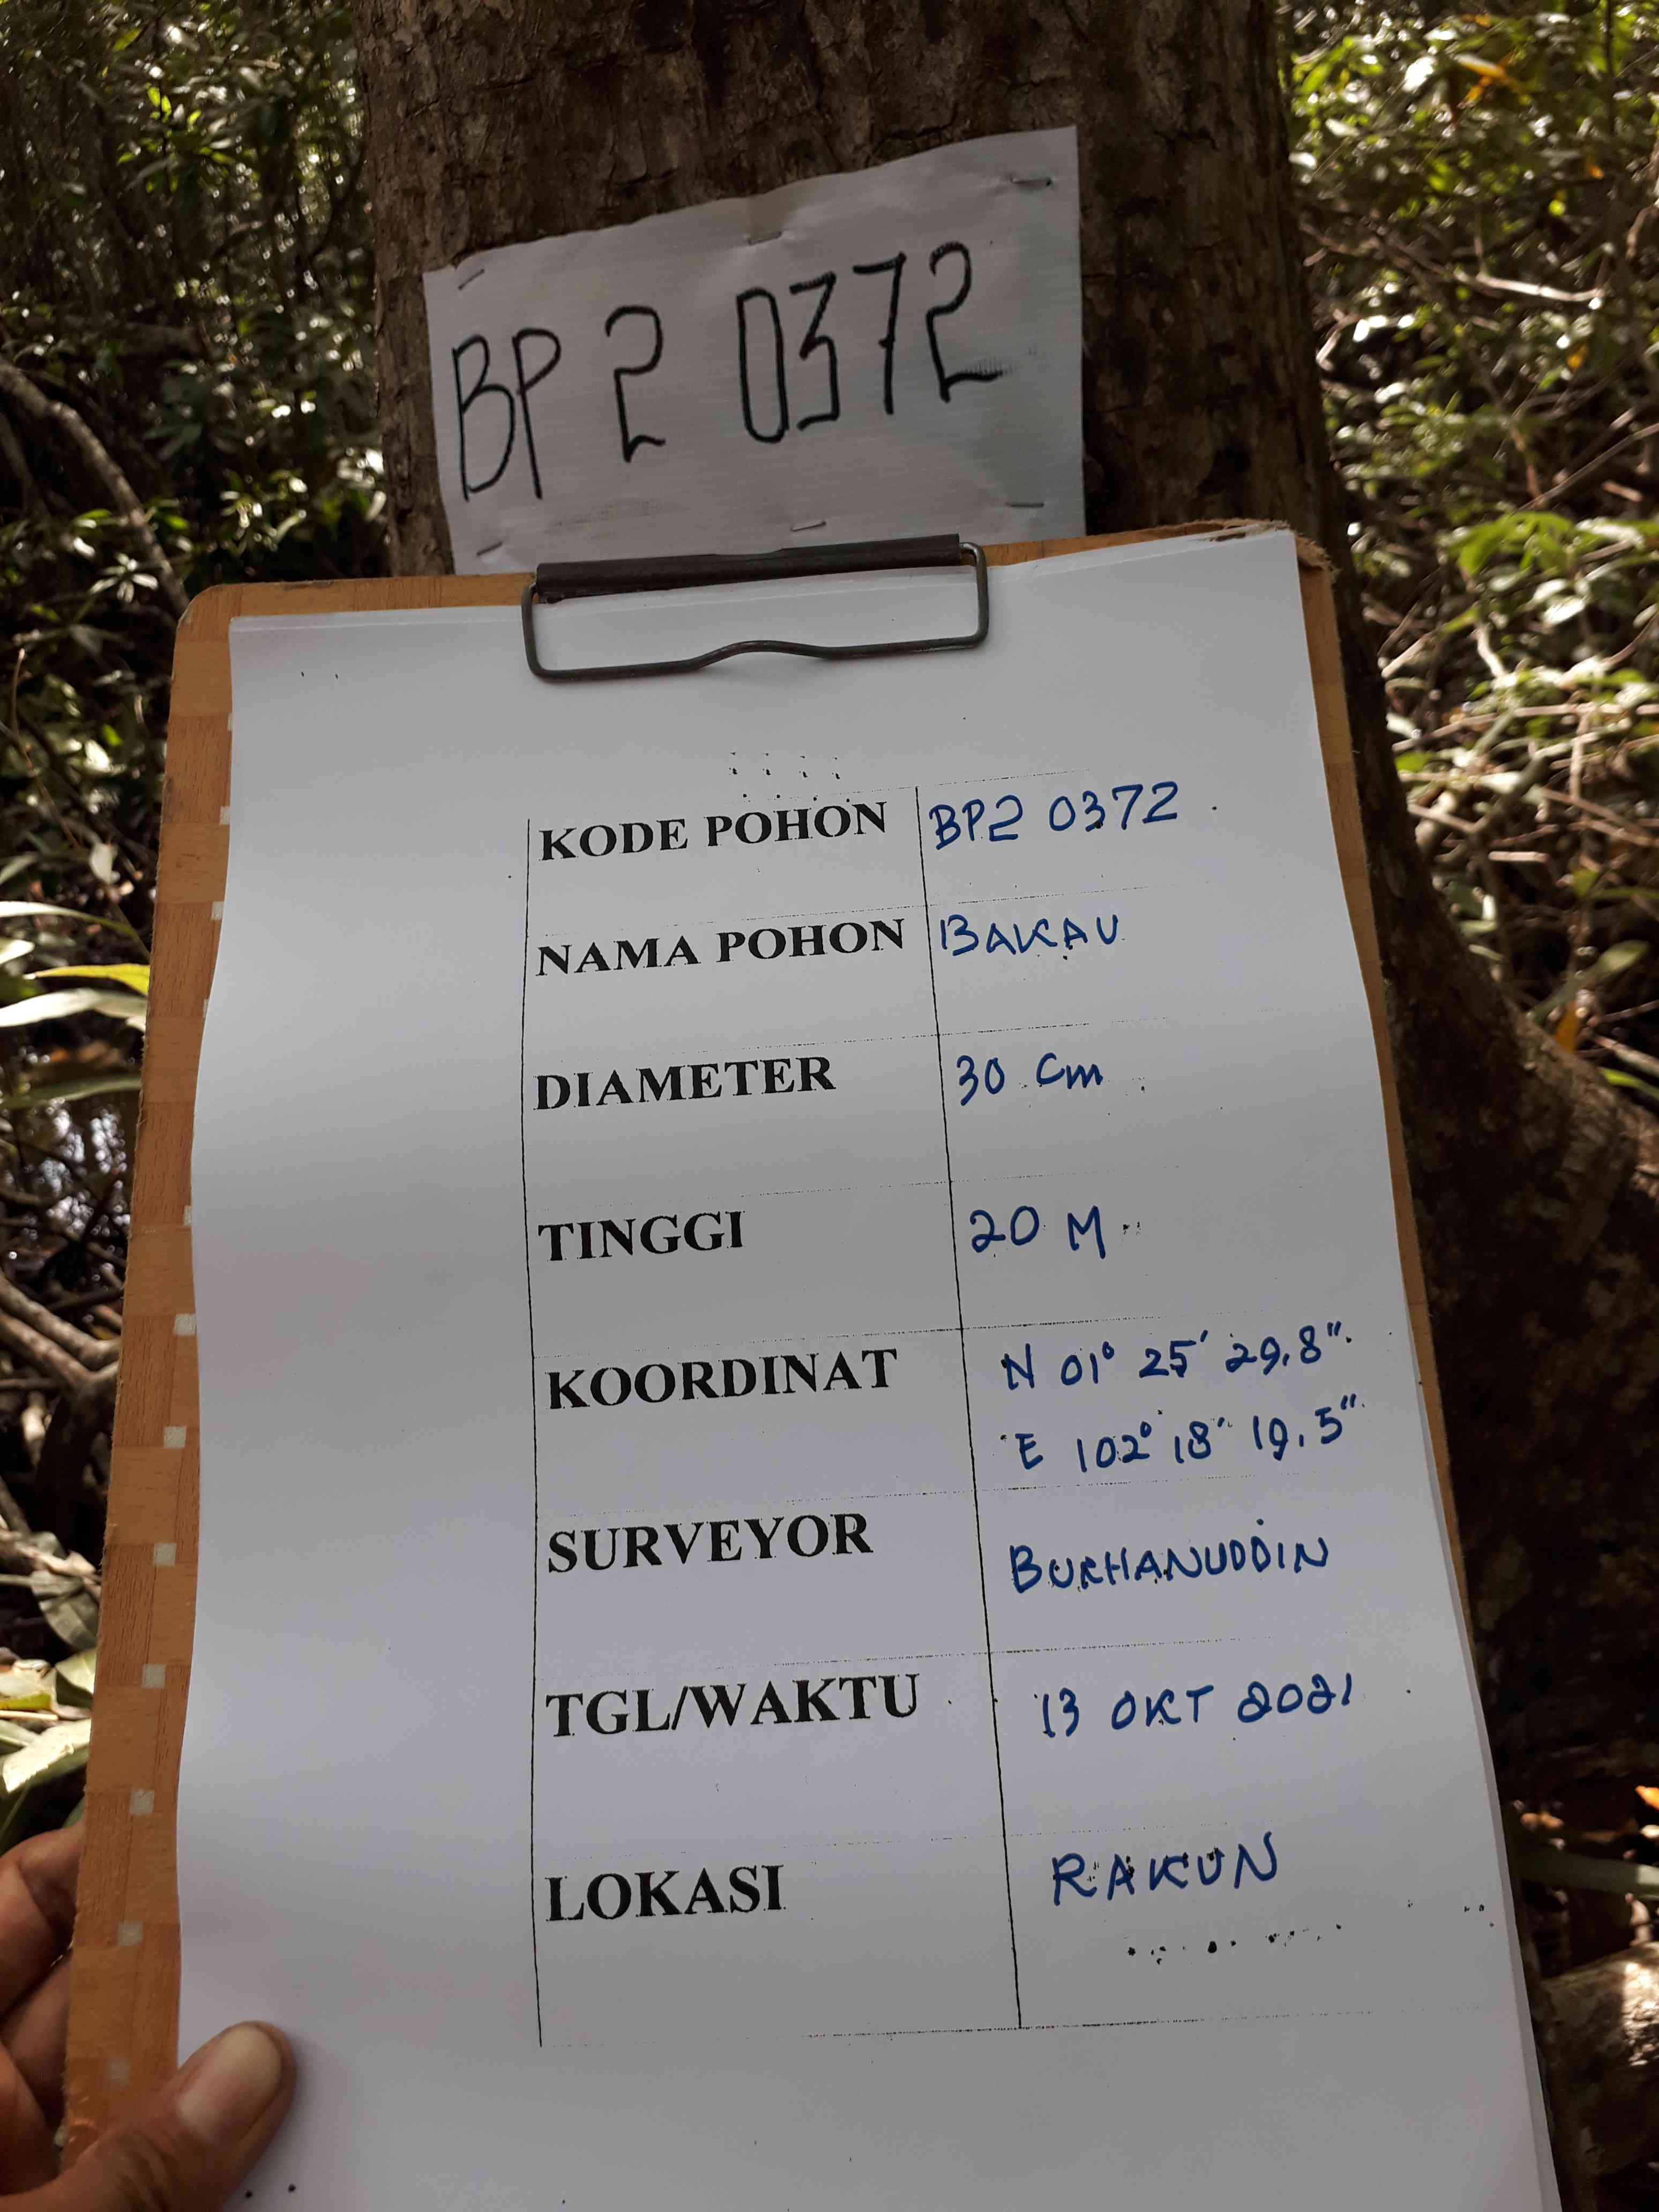 BP 2 0372
KODE POHON BP2 0372
NAMA POHON BAKAU
DIAMETER 30 Cm
TINGGI 20 M
KOORDINAT N 01° 25' 29,8"
E 102° 18' 19,5"
SURVEYOR BURHANUDDIN
TGL/WAKTU 13 OKT 2021
LOKASI RAKUN